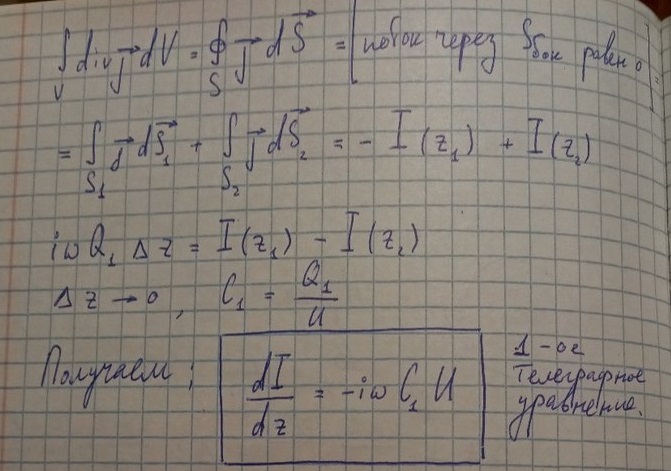 ∫_V div j⃗ dV = ∮_S j⃗ dS⃗ = [поток через S_бок равен 0] =
= ∫_{S_1} j⃗ dS⃗_1 + ∫_{S_2} j⃗ dS⃗_2 = - I(z_1) + I(z_2)
iω Q_1 Δz = I(z_1) - I(z_2)
Δz → 0, C_1 = Q_1/U
Получаем: dI/dz = -iω C_1 U
1-ое
Телеграфное
уравнение.